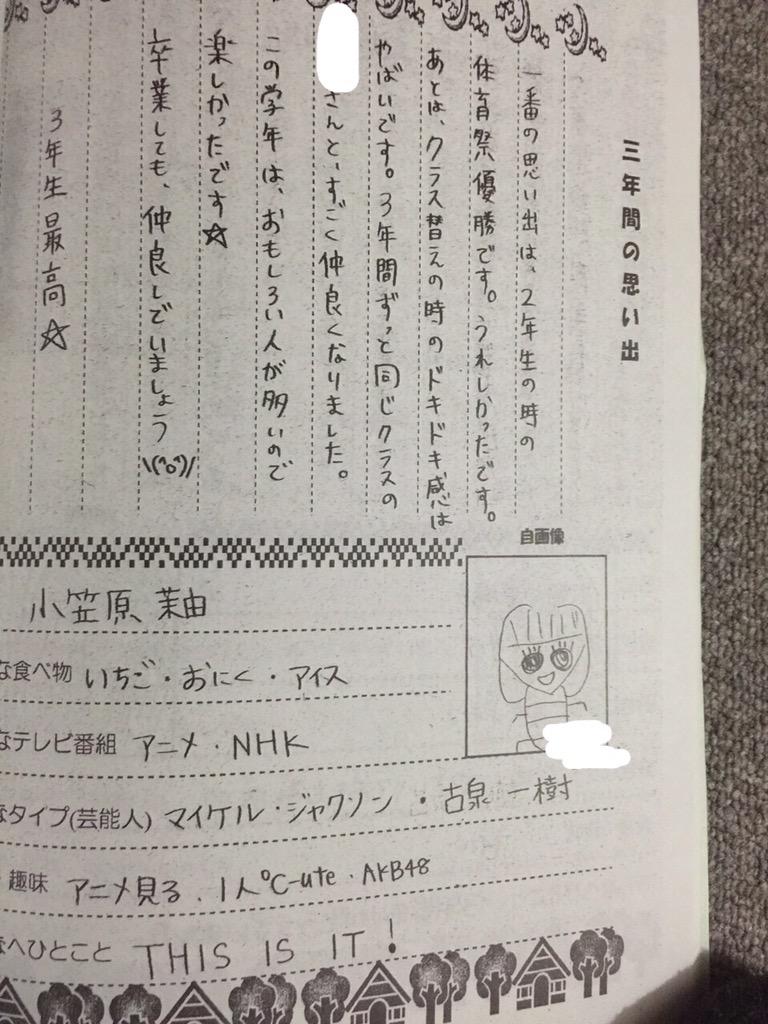 三年間の思い出
一番の思い出は、2年生の時の
体育祭優勝です。うれしかったです。
あとは、クラス替えの時のドキドキ感は
やばいです。3年間ずっと同じクラスの
さんと、すごく仲良くなりました。
この学年は、おもしろい人が多いので
楽しかったです☆
卒業しても、仲良しでいましょう\(^o^)/
3年生最高☆
自画像
小笠原 茉由
な食べ物 いちご・おにく・アイス
なテレビ番組 アニメ・NHK
なタイプ(芸能人) マイケル・ジャクソン・古泉一樹
趣味 アニメ見る、1人℃-ute・AKB48
なへひとこと THIS IS IT!